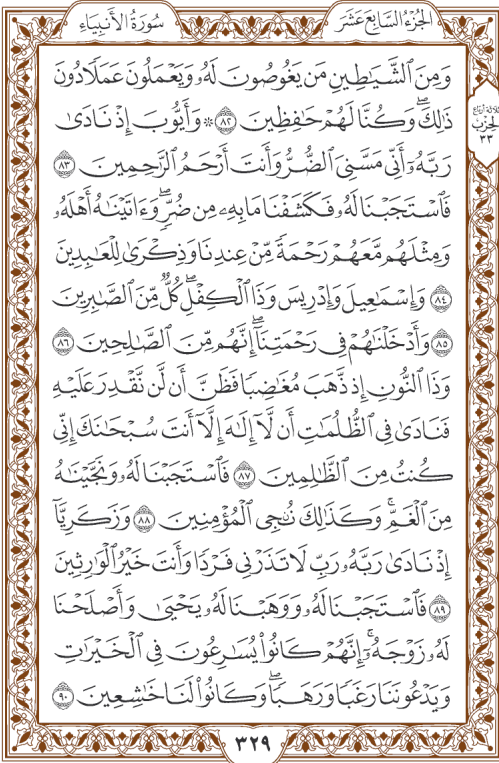 الجزء السابع عشر
سورة الأنبياء
وَمِنَ ٱلشَّيَٰطِينِ مَن يَغُوصُونَ لَهُۥ وَيَعْمَلُونَ عَمَلًا دُونَ
ذَٰلِكَۖ وَكُنَّا لَهُمْ حَٰفِظِينَ ٨٢ ۞ وَأَيُّوبَ إِذْ نَادَىٰ
رَبَّهُۥٓ أَنِّي مَسَّنِيَ ٱلضُّرُّ وَأَنتَ أَرْحَمُ ٱلرَّٰحِمِينَ ٨٣
فَٱسْتَجَبْنَا لَهُۥ فَكَشَفْنَا مَا بِهِۦ مِن ضُرّٖۖ وَءَاتَيْنَٰهُ أَهْلَهُۥ
وَمِثْلَهُم مَّعَهُمْ رَحْمَةٗ مِّنْ عِندِنَا وَذِكْرَىٰ لِلْعَٰبِدِينَ
٨٤ وَإِسْمَٰعِيلَ وَإِدْرِيسَ وَذَا ٱلْكِفْلِۖ كُلّٞ مِّنَ ٱلصَّٰبِرِينَ
٨٥ وَأَدْخَلْنَٰهُمْ فِي رَحْمَتِنَآۖ إِنَّهُم مِّنَ ٱلصَّٰلِحِينَ ٨٦
وَذَا ٱلنُّونِ إِذ ذَّهَبَ مُغَٰضِبٗا فَظَنَّ أَن لَّن نَّقْدِرَ عَلَيْهِ
فَنَادَىٰ فِي ٱلظُّلُمَٰتِ أَن لَّآ إِلَٰهَ إِلَّآ أَنتَ سُبْحَٰنَكَ إِنِّي
كُنتُ مِنَ ٱلظَّٰلِمِينَ ٨٧ فَٱسْتَجَبْنَا لَهُۥ وَنَجَّيْنَٰهُ
مِنَ ٱلْغَمِّۚ وَكَذَٰلِكَ نُۨجِي ٱلْمُؤْمِنِينَ ٨٨ وَزَكَرِيَّآ
إِذْ نَادَىٰ رَبَّهُۥ رَبِّ لَا تَذَرْنِي فَرْدٗا وَأَنتَ خَيْرُ ٱلْوَٰرِثِينَ
٨٩ فَٱسْتَجَبْنَا لَهُۥ وَوَهَبْنَا لَهُۥ يَحْيَىٰ وَأَصْلَحْنَا
لَهُۥ زَوْجَهُۥٓۚ إِنَّهُمْ كَانُوا۟ يُسَٰرِعُونَ فِي ٱلْخَيْرَٰتِ
وَيَدْعُونَنَا رَغَبٗا وَرَهَبٗاۖ وَكَانُوا۟ لَنَا خَٰشِعِينَ ٩٠
ثلاثة أرباع
الحزب
٣٣
٣٢٩